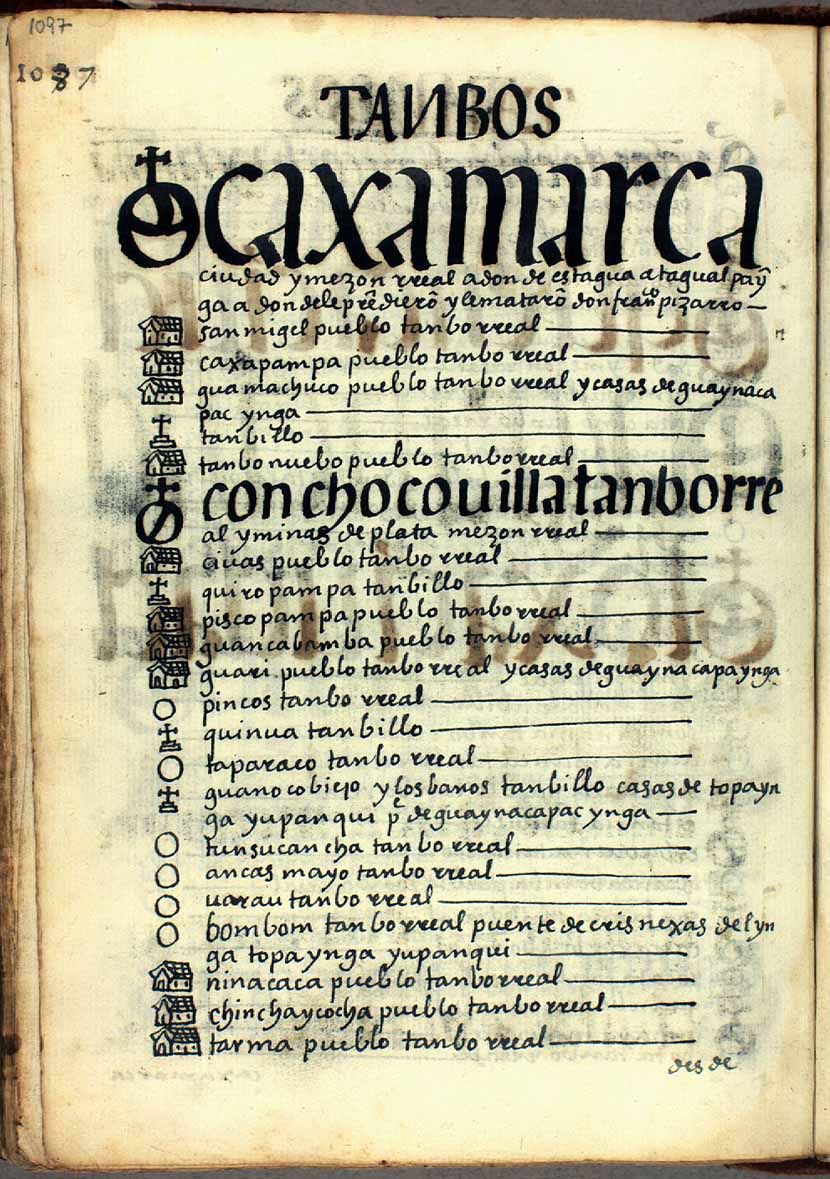 1097
1087
TANBOS
caxamarca
ciudad y mezon rreal adonde estagua atagualpa yn̄
ga a donde le prēdierō y le matarō don franco pizarro
san migel pueblo tanbo rreal
caxapampa pueblo tanbo rreal
guamachuco pueblo tanbo rreal y casas de guaynaca
pac ynga
tanbillo
tanbo nuebo pueblo tanbo rreal
conchoco uilla tanbo rre
al y minas de plata mezon rreal
ciuas pueblo tanbo rreal
quiro pampa tanbillo
piscopampa pueblo tanbo rreal
guancabamba pueblo tanbo rreal
guari pueblo tanbo rreal y casas de guaynacapa ynga
pincos tanbo rreal
quinua tanbillo
taparaco tanbo rreal
guanoco biejo y los banos tanbillo casas de topa yn
ga yupanqui p̄ de guaynacapac ynga
tunsucancha tanbo rreal
ancas mayo tanbo rreal
uarau tanbo rreal
bombom tanbo rreal puente de crisnexas del yn
ga topa ynga yupanqui
ninacaca pueblo tanbo rreal
chinchaycocha pueblo tanbo rreal
tarma pueblo tanbo rreal
desde